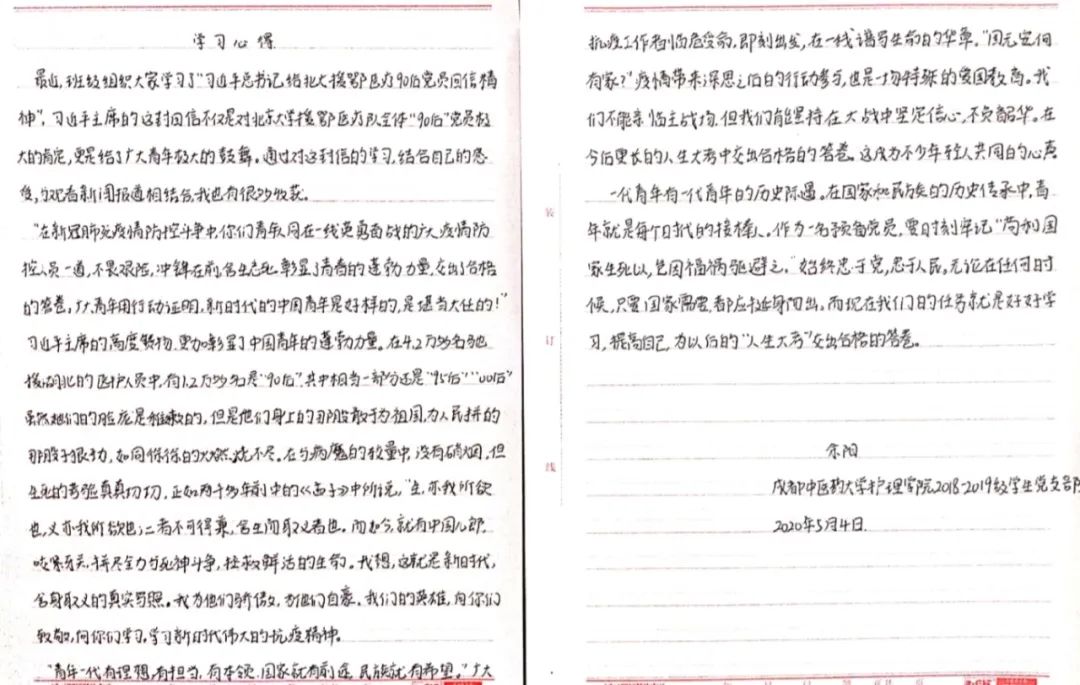 学习心得
最近,班级组织大家学习了"习近平总书记给北大援鄂医疗90后党员回信精
神",习近平主席的这封回信不仅是对北京大学援鄂医疗队全体"90后"党员极
大的肯定,更是给了广大青年极大的鼓舞。通过对这封信的学习,结合自己的感
受,与观看新闻报道相结合,我也有很多收获。
"在新冠肺炎疫情防控斗争中,你们青年人同在一线英勇奋战的广大疫情防
控人员一道,不畏艰险,冲锋在前,舍生忘死,彰显了青春的蓬勃力量,交出了合格
的答卷,广大青年用行动证明,新时代的中国青年是好样的,是堪当大任的!"
习近平主席的高度赞扬,更加彰显了中国青年的蓬勃力量。在4.2万多名驰
援湖北的医护人员中,有1.2万多名是"90后",其中相当一部分还是"95后""00后"
虽然他们的脸庞是稚嫩的,但是他们身上的那股敢于为祖国,为人民拼的
那股子狠劲,如同熊熊的火燃烧不尽。在与病魔的较量中,没有硝烟,但
生死的考验真真切切,正如两千多年前中的《孟子》中所说,"生,亦我所欲
也,义亦我所欲也;二者不可得兼,舍生而取义者也。而如今,就有中国儿郎,
咬紧牙关,拼尽全力与死神斗争,拯救鲜活的生命。我想,这就是新时代,
舍身取义的真实写照。我为他们骄傲,为他们自豪。我们的英雄,向你们
致敬,向你们学习,学习新时代伟大的抗疫精神。
"青年一代有理想,有担当,有本领,国家就有前途,民族就有希望。"广大
抗疫工作者临危受命,即刻出发,在一线谱写生命的华章。"国无定何
有家?"疫情带来深思之后的行动参与,也是一场特殊的爱国教育。我
们不能亲临主战场,但我们能坚持在大战中坚定信心,不负韶华。在
今后更长的人生大考中交出合格的答卷。这成为不少年轻人共同的心声
一代青年有一代青年的历史际遇。在国家和民族的历史传承中,青
年就是每个时代的接棒人。作为一名预备党员,要时刻牢记"苟利国
家生死以,岂因福祸驱避之。"始终忠于党,忠于人民。无论在任何时
候,只要国家需要,都应挺身而出。而现在我们的任务就是好好学
习,提高自己,为以后的"人生大考"交出合格的答卷。
装
订
线
余阳
成都中医药大学护理学院2018-2019级学生党支部
2020年5月4日